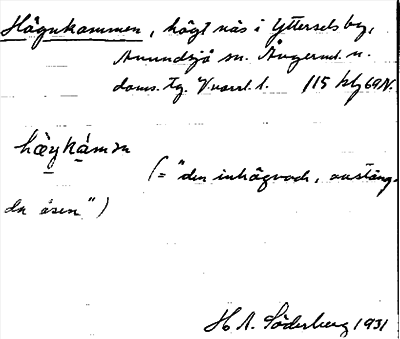 Högnkammen, högt näs i Yttersels by,
Anundsjö sn. Ångerml. n.
doms. tg. V.norrl. l. 115 kbf 69 N.
hæ̀ykámǝn
(= "den inhägnade, avstäng-
da åsen")
H. A. Söderberg 1931